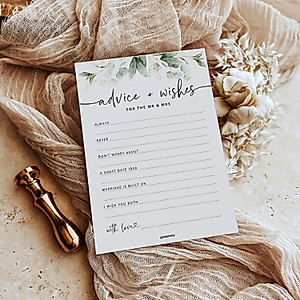 advice + wishes
FOR THE MR & MRS
ALWAYS
NEVER
DON'T WORRY ABOUT
A GREAT DATE IDEA
MARRIAGE IS BUILT ON
I WISH YOU BOTH
with love,